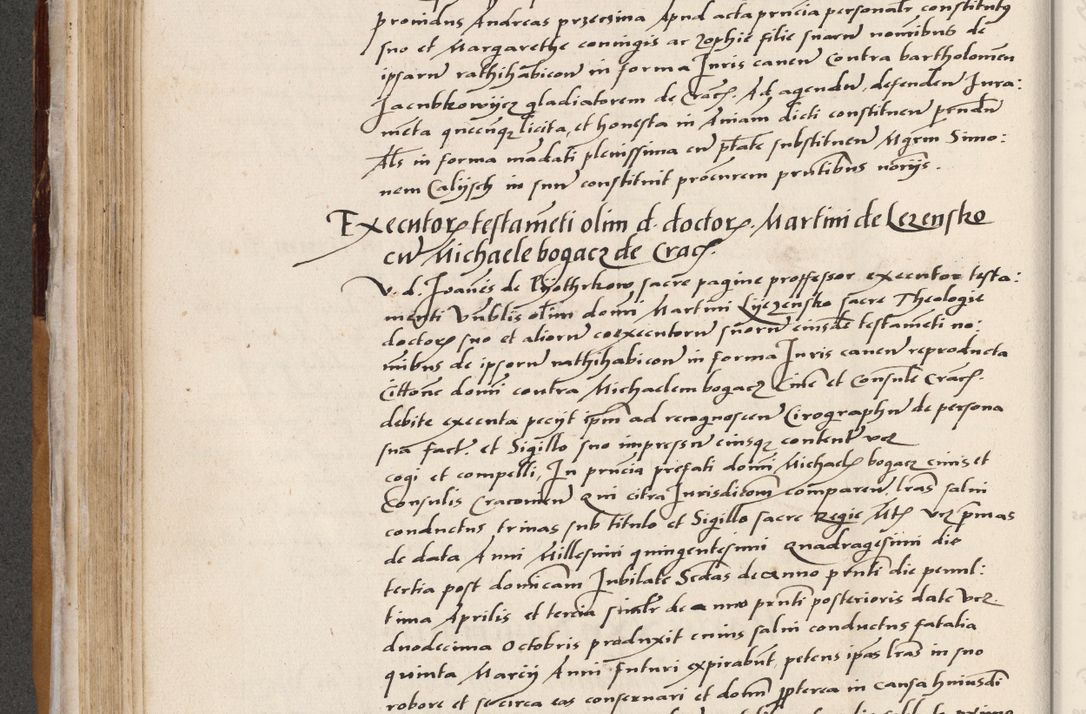 promdus Andreas przeczina Apud acta prncia personalr constitutus
suo et Margarethe coniugis ac zophie filie suarum nominibus de
ipsarum rathihabicone in forma Iuris canen contra bartholomeu
Iacubkowijcz gladiatorem de Crac. Ad agendu, defenden Iura:
meta quecunqz licita, et honesta in Aniam dicti constituen prendu
Als in forma madati plenissima cu ptate substituen Mgrm Simo:
nem Calijsch in suu constituit procurem prntibus norijs.
Executor testameti olim d. doctor. Martini de Lezensko
cu Michaele bogacz de Crac.
V. d. Ioanes de Pyothrkow sacre pagine proffessor executor testa:
menti Vnblis olim domi Martini Lyezensko sacre Theologie
doctor suo et aliorum coexecutoru suoru eiusde testameti no:
mibus de ipsoru rathihabicone in forma Iuris canen reproducta
Cittone domi contra Michaelem bogacz Ciue et Consule Crac.
debite executa pecijt ipm ad recognoscen Cirographu de persona
sua fact. et Sigillo suo impressu eiusqz content vez
cogi et compelli, In prncia prefati domi Michael bogacz ciuis et
Consulis Cracouien Qui citra Iurisditom comparen. lras salui
conductus trinas sub titulo et Sigillo sacre Regie Mt vez pmas
de data Anni Millesimi quingentesimi Quadragesimi die
tertia post domicam Iubilate Sedas de anno prnti die penul:
tima Aprilis et tercia similr de anno prnti posterioris date vez
duodecima Octobris produxit cuius salui conductus fatalia
quinta Marcij Anni futuri expirabut, petens ipas lras in suo
robore et se circa eas conseruari et domi ppterea in causa huiusdi